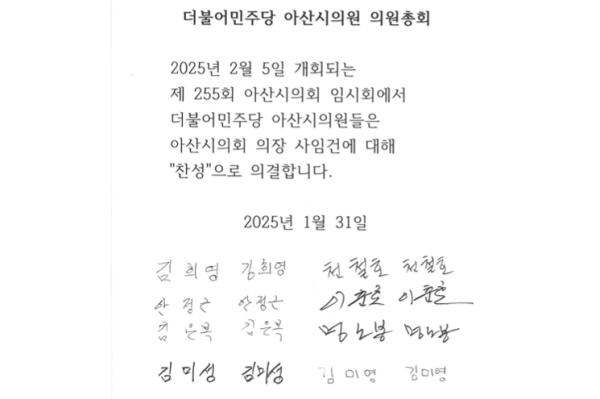 더불어민주당 아산시의원 의원총회
2025년 2월 5일 개회되는
제 255회 아산시의회 임시회에서
더불어민주당 아산시의원들은
아산시의회 의장 사임건에 대해
"찬성"으로 의결합니다.
2025년 1월 31일
김희영 김희영 천철호 천철호
안정근 안정근 이춘호 이춘호
김은복 김은복 명노봉 명노봉
김미성 김미성 김미영 김미영